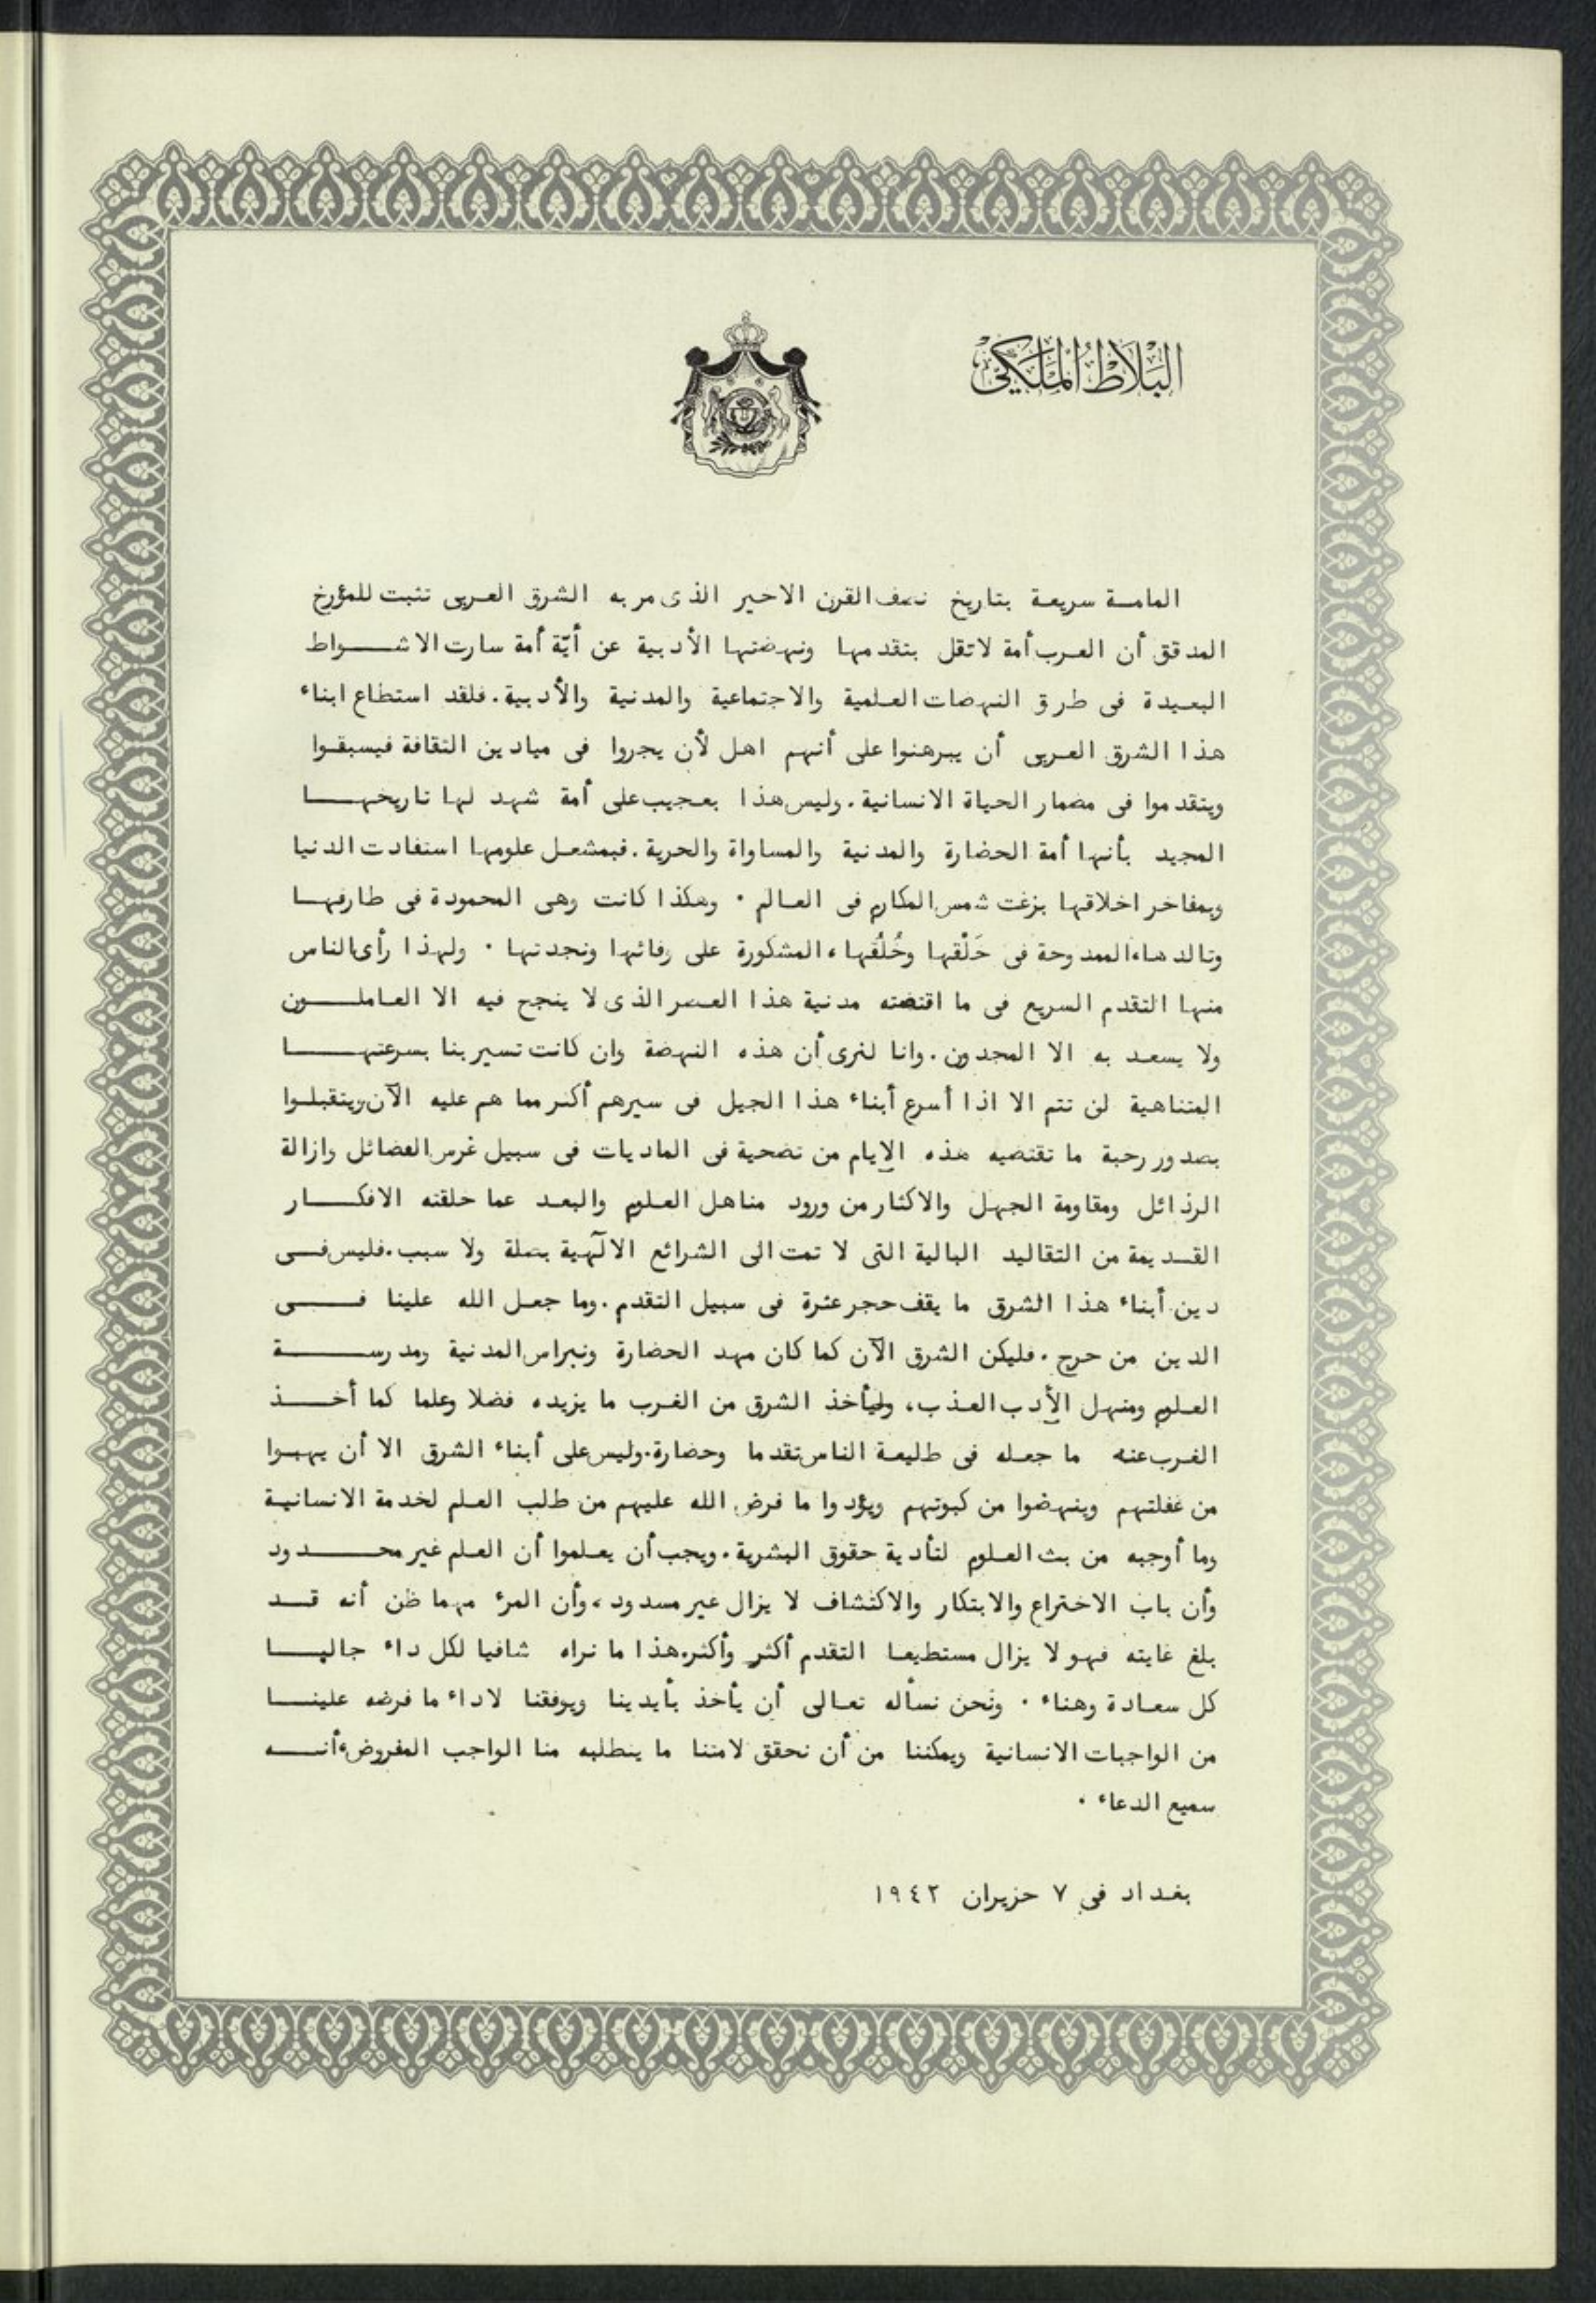 البلاط الملكي
المامة سريعة بتاريخ نصف القرن الاخير الذى مر به الشرق العربى تثبت للمؤرخ
المدقق أن العرب أمة لا تقل بتقدمها ونهضتها الأدبية عن أيّة أمة سارت الاشواط
البعيدة فى طرق النهضات العلمية والاجتماعية والمدنية والأدبية. فلقد استطاع ابناء
هذا الشرق العربى أن يبرهنوا على أنهم اهل لأن يجروا فى ميادين الثقافة فيسبقوا
ويتقدموا فى مضمار الحياة الانسانية. وليس هذا بعجيب على أمة شهد لها تاريخها
المجيد بأنها أمة الحضارة والمدنية والمساواة والحرية. فبمشعل علومها استفادت الدنيا
وبمفاخر اخلاقها بزغت شمس المكارم فى العالم . وهكذا كانت وهى المحمودة فى طارفها
وتالدها، الممدوحة فى خَلْقها وخُلُقها، المشكورة على وفائها ونجدتها . ولهذا رأى الناس
منها التقدم السريع فى ما اقتضته مدنية هذا العصر الذى لا ينجح فيه الا العاملون
ولا يسعد به الا المجدون. وانا لنرى أن هذه النهضة وان كانت تسير بنا بسرعتها
المتناهية لن تتم الا اذا أسرع أبناء هذا الجيل فى سيرهم أكثر مما هم عليه الآن ويتقبلوا
بصدور رحبة ما تقتضيه هذه الايام من تضحية فى الماديات فى سبيل غرس الفضائل وازالة
الرذائل ومقاومة الجهل والاكثار من ورود مناهل العلوم والبعد عما خلقته الافكار
القديمة من التقاليد البالية التى لا تمت الى الشرائع الالٓهية بصلة ولا سبب. فليس فى
دين أبناء هذا الشرق ما يقف حجر عثرة فى سبيل التقدم. وما جعل الله علينا فى
الدين من حرج. فليكن الشرق الآن كما كان مهد الحضارة ونبراس المدنية ومدرسة
العلوم ومنهل الأدب العذب، وليأخذ الشرق من الغرب ما يزيده فضلا وعلما كما أخذ
الغرب عنه ما جعله فى طليعة الناس تقدما وحضارة. وليس على أبناء الشرق الا أن يهبوا
من غفلتهم وينهضوا من كبوتهم ويؤدوا ما فرض الله عليهم من طلب العلم لخدمة الانسانية
وما أوجبه من بث العلوم لتأدية حقوق البشرية. ويجب أن يعلموا أن العلم غير محدود
وأن باب الاختراع والابتكار والاكتشاف لا يزال غير مسدود، وأن المرء مهما ظن أنه قد
بلغ غايته فهو لا يزال مستطيعا التقدم أكثر وأكثر. هذا ما نراه شافيا لكل داء جالبا
كل سعادة وهناء . ونحن نسأله تعالى أن يأخذ بأيدينا ويوفقنا لاداء ما فرضه علينا
من الواجبات الانسانية ويمكننا من أن نحقق لامتنا ما يتطلبه منا الواجب المفروض، أنه
سميع الدعاء .
بغداد فى ٧ حزيران ١٩٤٢